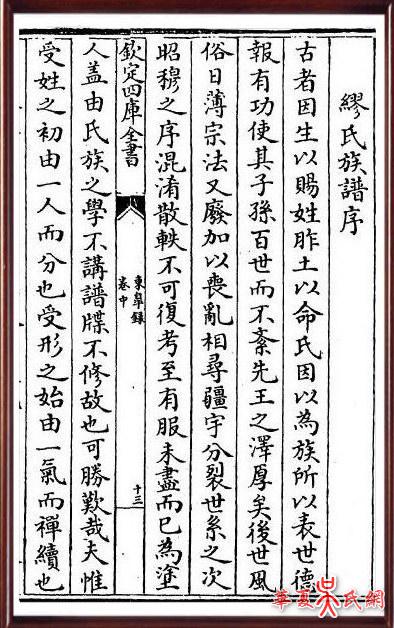 繆氏族譜序
古者因生以賜姓胙土以命氏因以為族所以表世德
報有功使其子孫百世而不紊先王之澤厚矣後世風
俗日薄宗法又廢加以喪亂相尋疆宇分裂世系之次
昭穆之序混淆散軼不可復考至有服未盡而已為塗
欽定四庫全書
東臯錄
卷中
十三
人蓋由氏族之學不講譜牒不修故也可勝歎哉夫惟
受姓之初由一人而分也受形之始由一氣而禪續也
華夏吴氏網